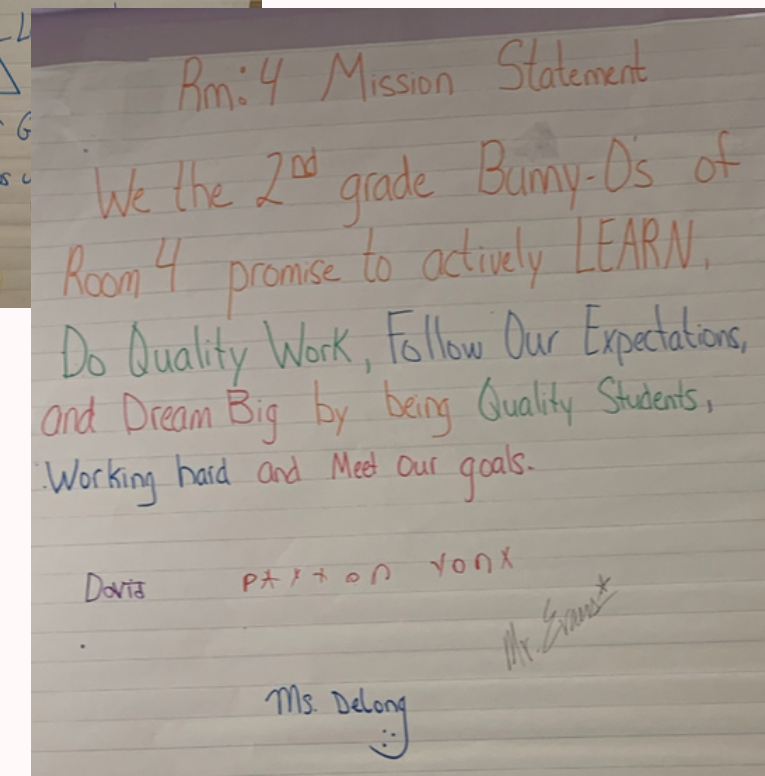 Rm: 4 Mission Statement
We the 2nd grade Bumy-O's of
Room 4 promise to actively LEARN,
Do Quality Work, Follow Our Expectations,
and Dream Big by being Quality Students,
Working hard and Meet Our goals.
David
Mr. Evans*
Ms. Delong
:)